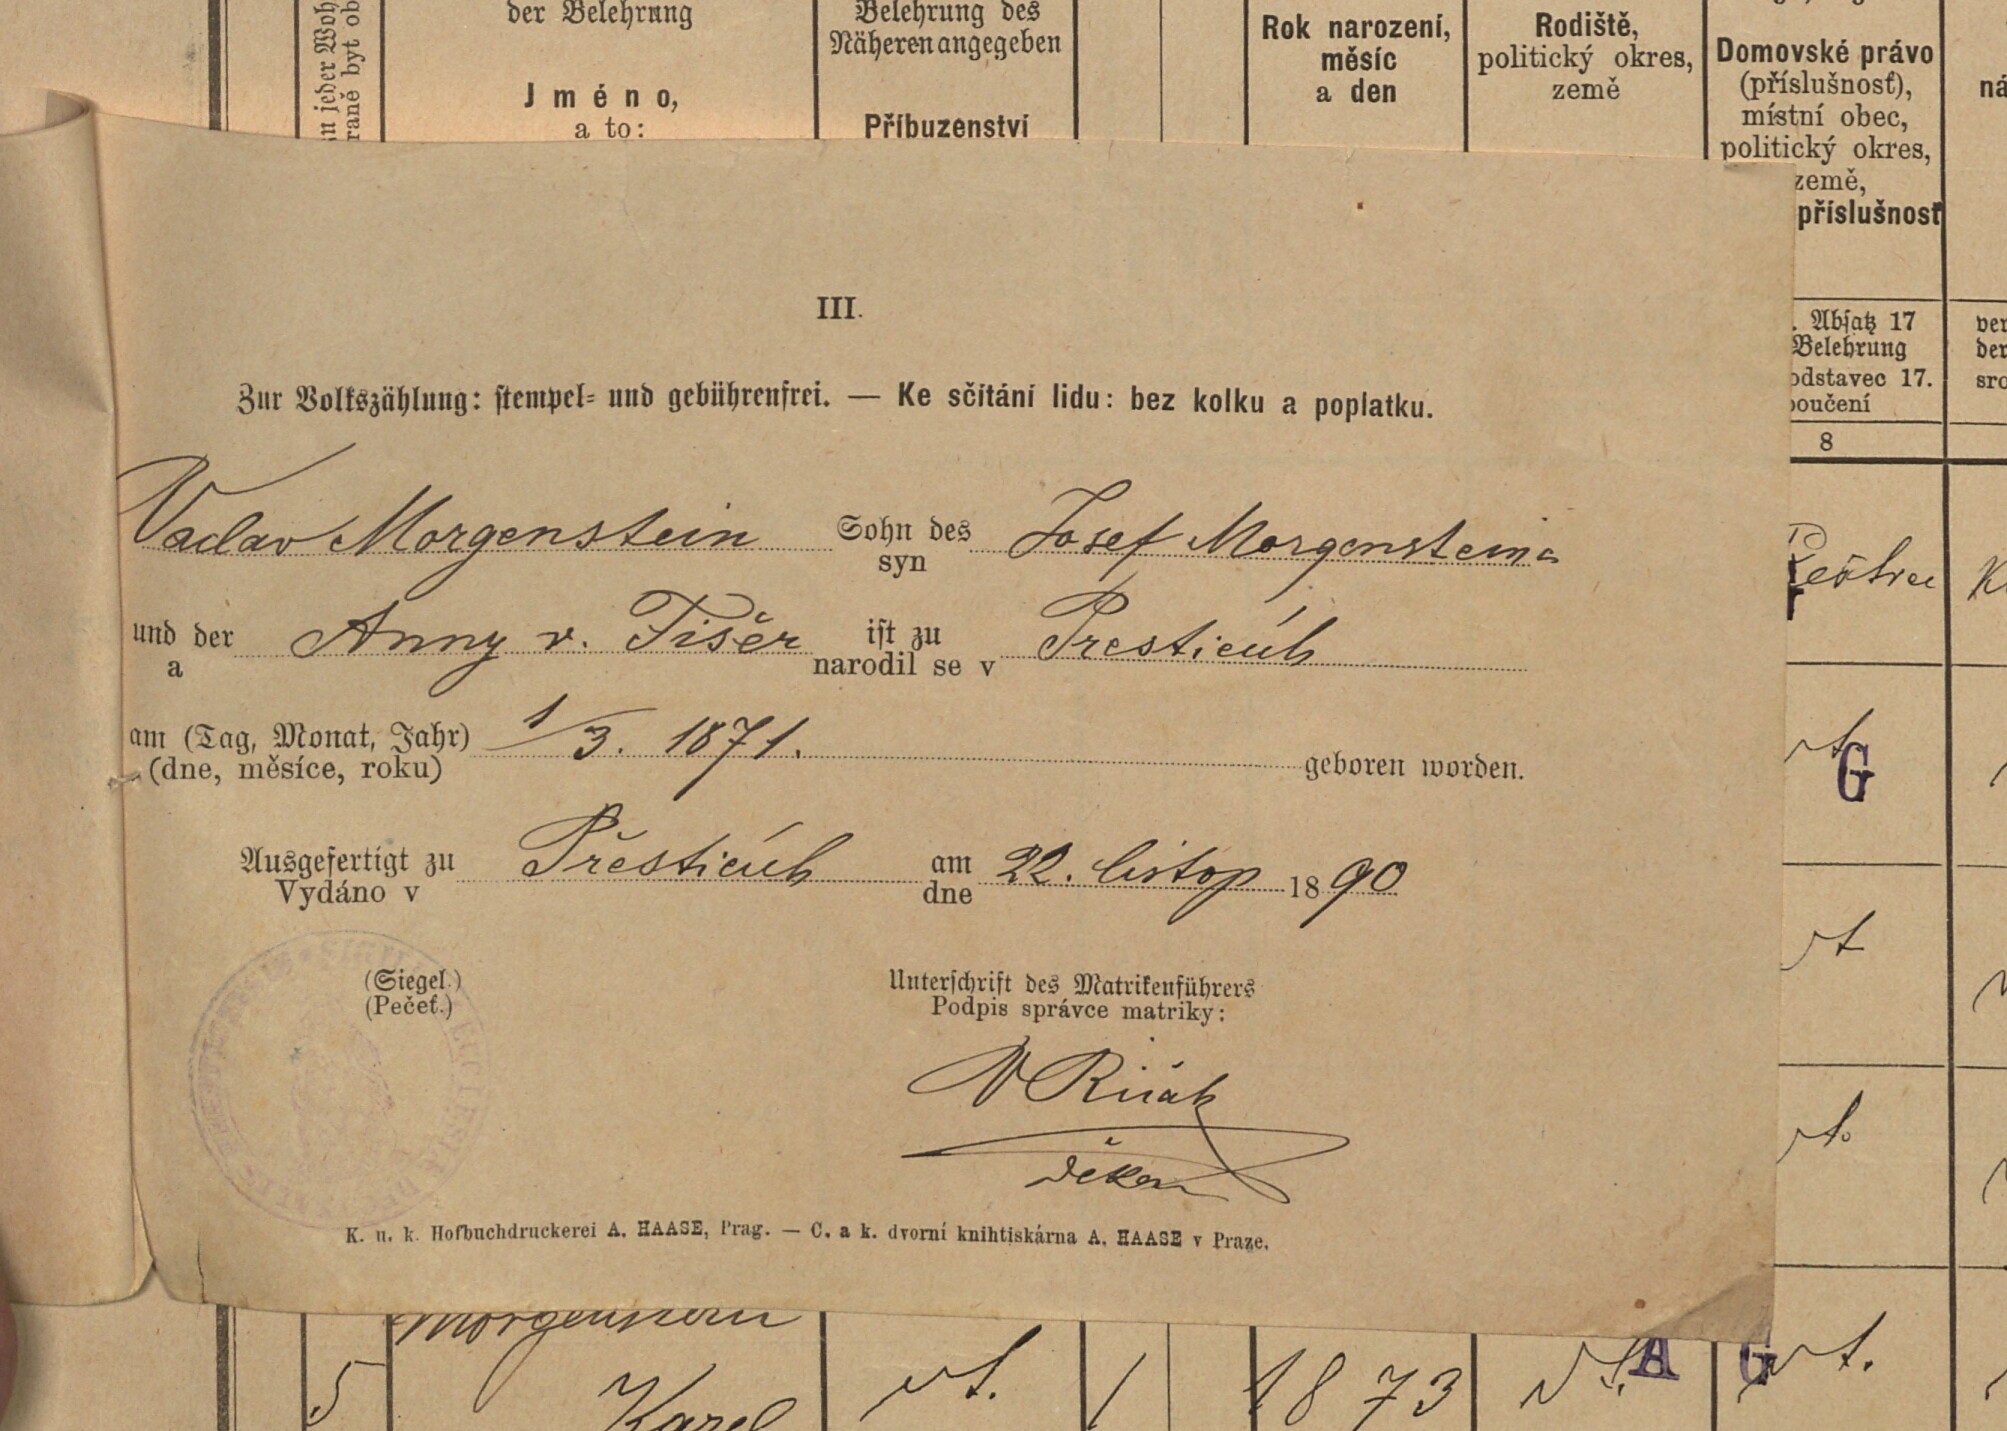 der Belehrung
Jméno,
a to:
Belehrung des
Näheren angegeben
Příbuzenství
Rok narození,
měsíc
a den
Rodiště,
politický okres,
země
Domovské právo
(příslušnosť),
místní obec,
politický okres,
země,
příslušnosť
Absatz 17
Belehrung
odstavec 17.
poučení
8
III.
Zur Volkszählung: stempel- und gebührenfrei. — Ke sčítání lidu: bez kolku a poplatku.
Vaclav Morgenstein Sohn des Josef Morgensteina
syn
und der Anny r. Fišer ist zu Presticích
a narodil se v
am (Tag, Monat, Jahr) 1/3. 1871.
(dne, měsíce, roku) geboren worden.
Ausgefertigt zu Přesticích am 22. listop 1890
Vydáno v dne
(Siegel.) Unterschrift des Matrikenführers
(Pečeť.) Podpis správce matriky:
děkan
K. u. k. Hofbuchdruckerei A. HAASE, Prag. — C. a k. dvorní knihtiskárna A. HAASE v Praze.
G
Morgenstein
5 Karel vt. 1 1873 vt. A G vt.